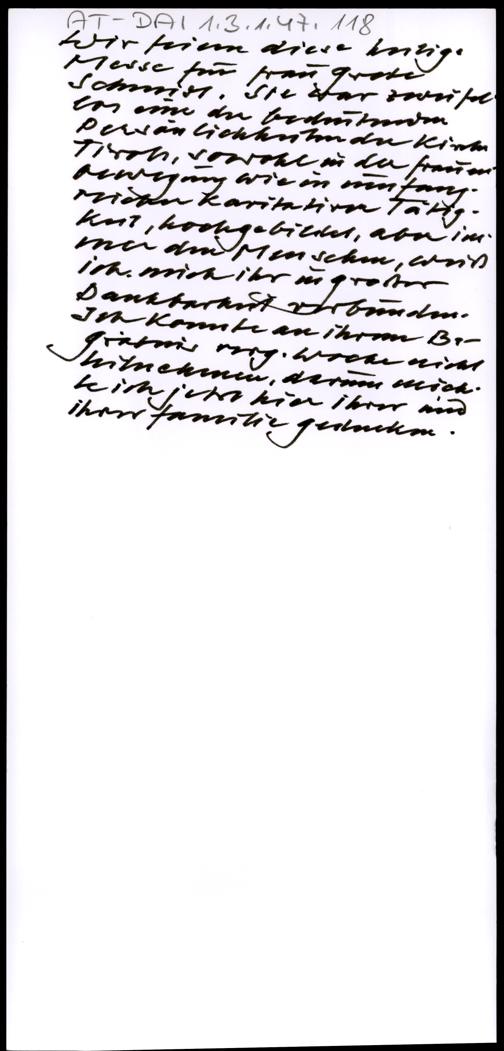 AT-DAI 1.3.1.47.118
Wir feiern diese heilige
Messe für Frau Grete
Schmidl. Sie war zweifel
los eine der bedeutenden
Persönlichkeiten der Kirche
Tirols, sowohl in der Frauen
bewegung wie in umfang-
reicher karitativer Tätig-
keit, hochgebildet, aber im-
mer den Menschen, weiß
ich mich ihr in großer
Dankbarkeit verbunden.
Ich konnte an ihrem Be-
gräbnis verg. Woche nicht
teilnehmen, darum möch-
te ich jetzt hier ihrer und
ihrer Familie gedenken.